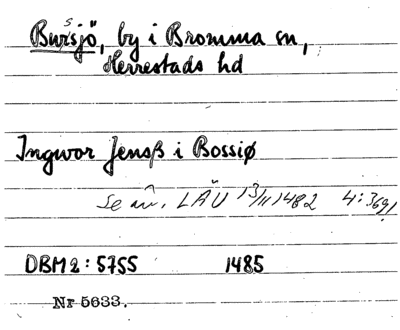 Bursjö, by i Bromma sn,
Herrestads hd
Ingwor Jensß i Bossiø
Se äv. LÄU 13/11 1482 4:369,
DBM2: 5755 1485
Nr 5633.